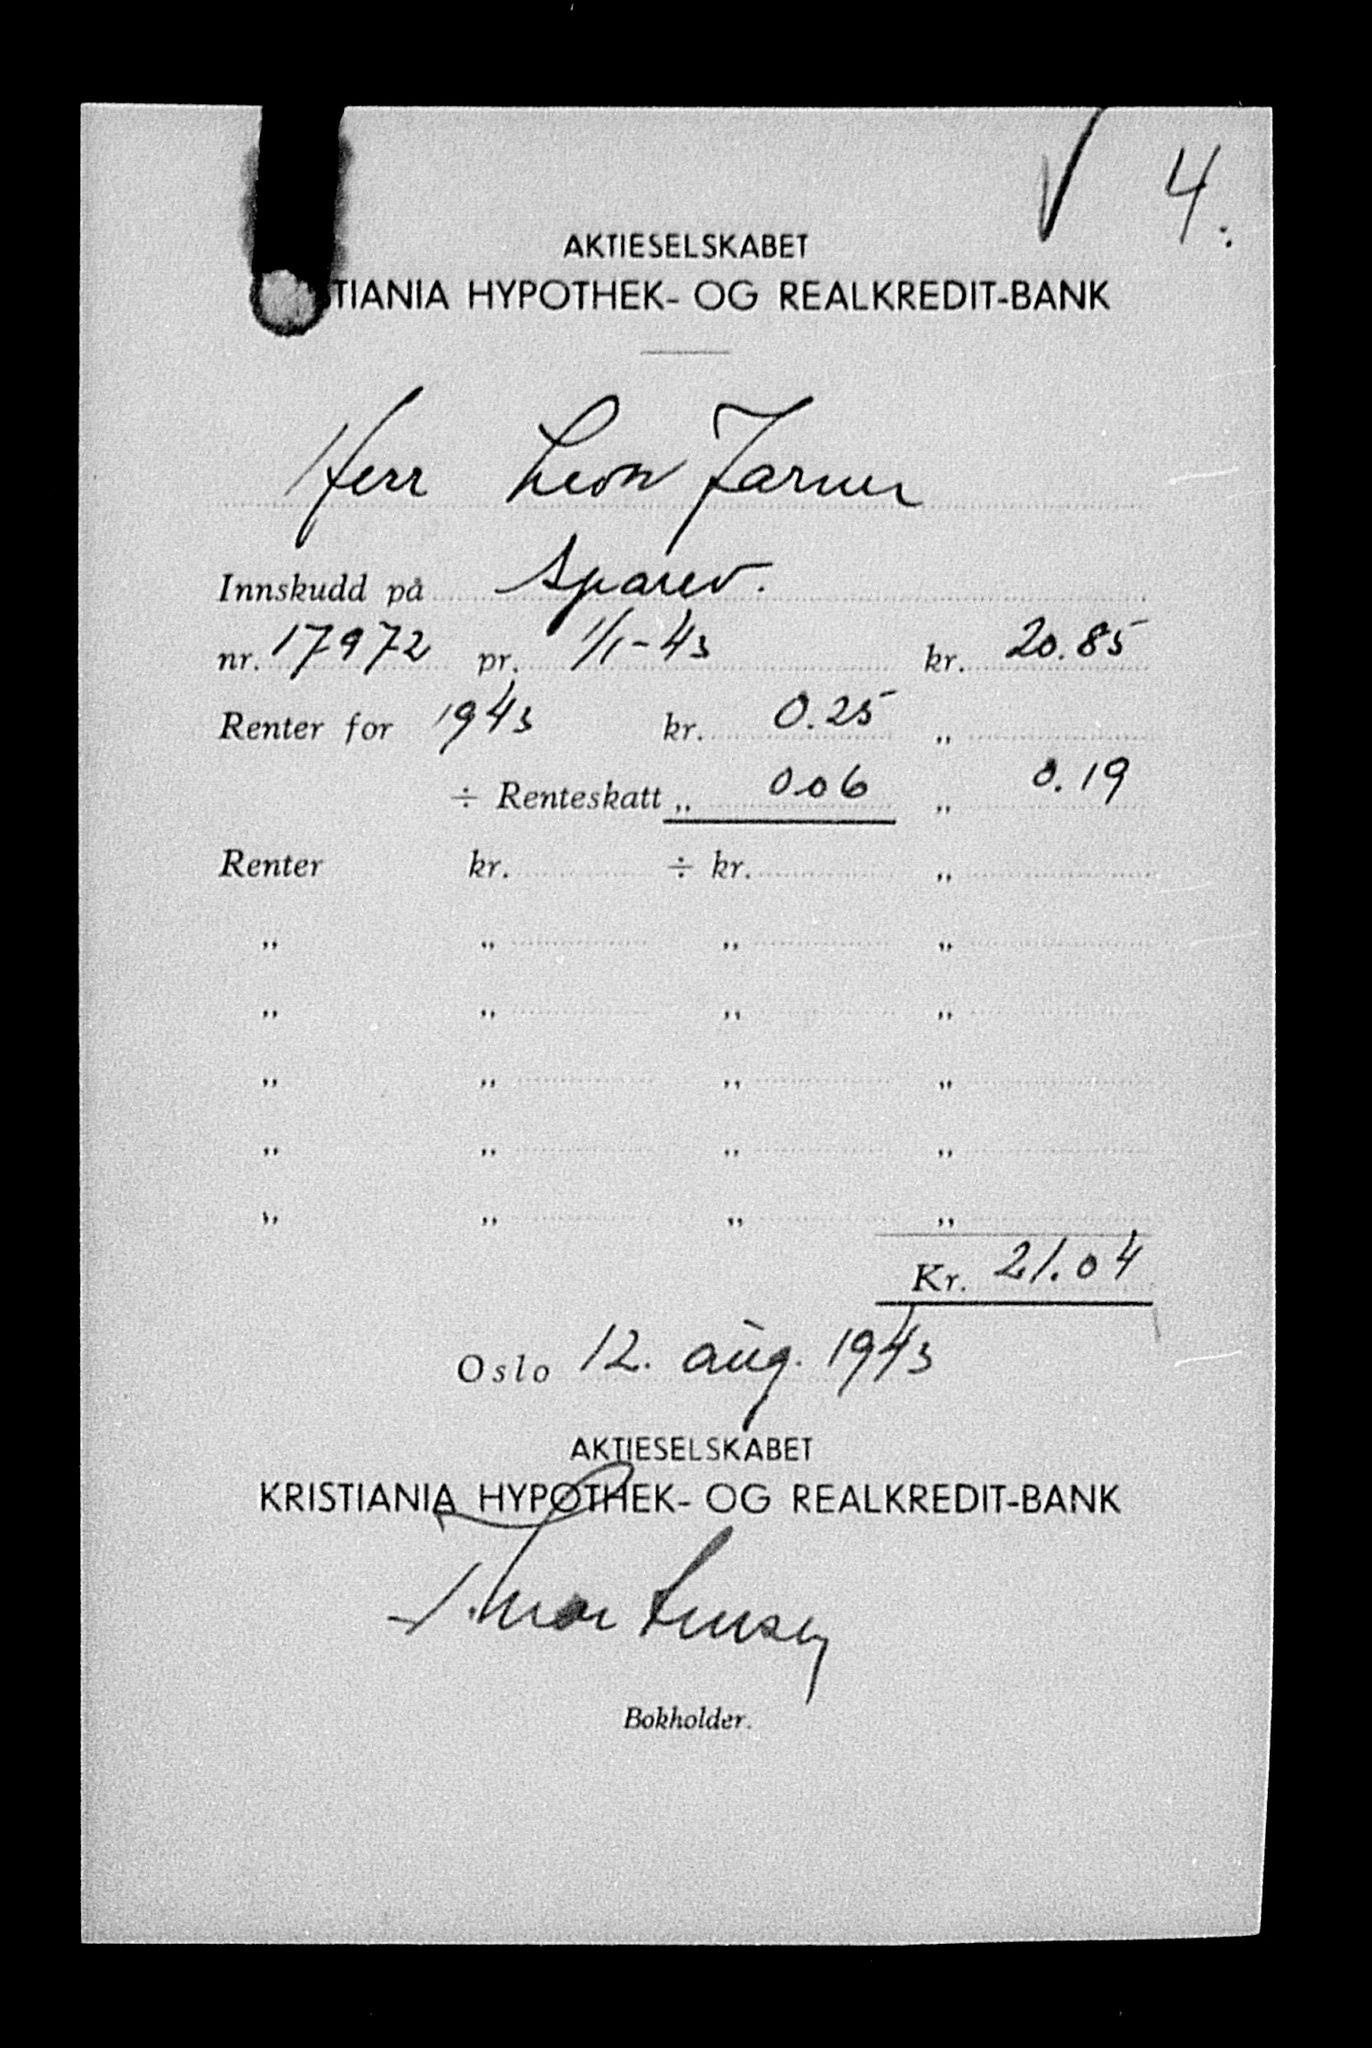 4.
AKTIESELSKABET
TIANIA HYPOTHEK- OG REALKREDIT-BANK
Herr Leon Jarner
Innskudd på Sparev.
nr. 17972 pr. 1/1-43 kr. 20.85
Renter for 1943 kr. 0.25 „
÷ Renteskatt „ 0.06 „ 0.19
Renter kr. ÷ kr. „
„ „ „ „
„ „ „ „
„ „ „ „
„ „ „ „
„ „ „ „
Kr. 21.04
Oslo 12. aug. 1943
AKTIESELSKABET
KRISTIANIA HYPOTHEK- OG REALKREDIT-BANK
Mortensen
Bokholder.